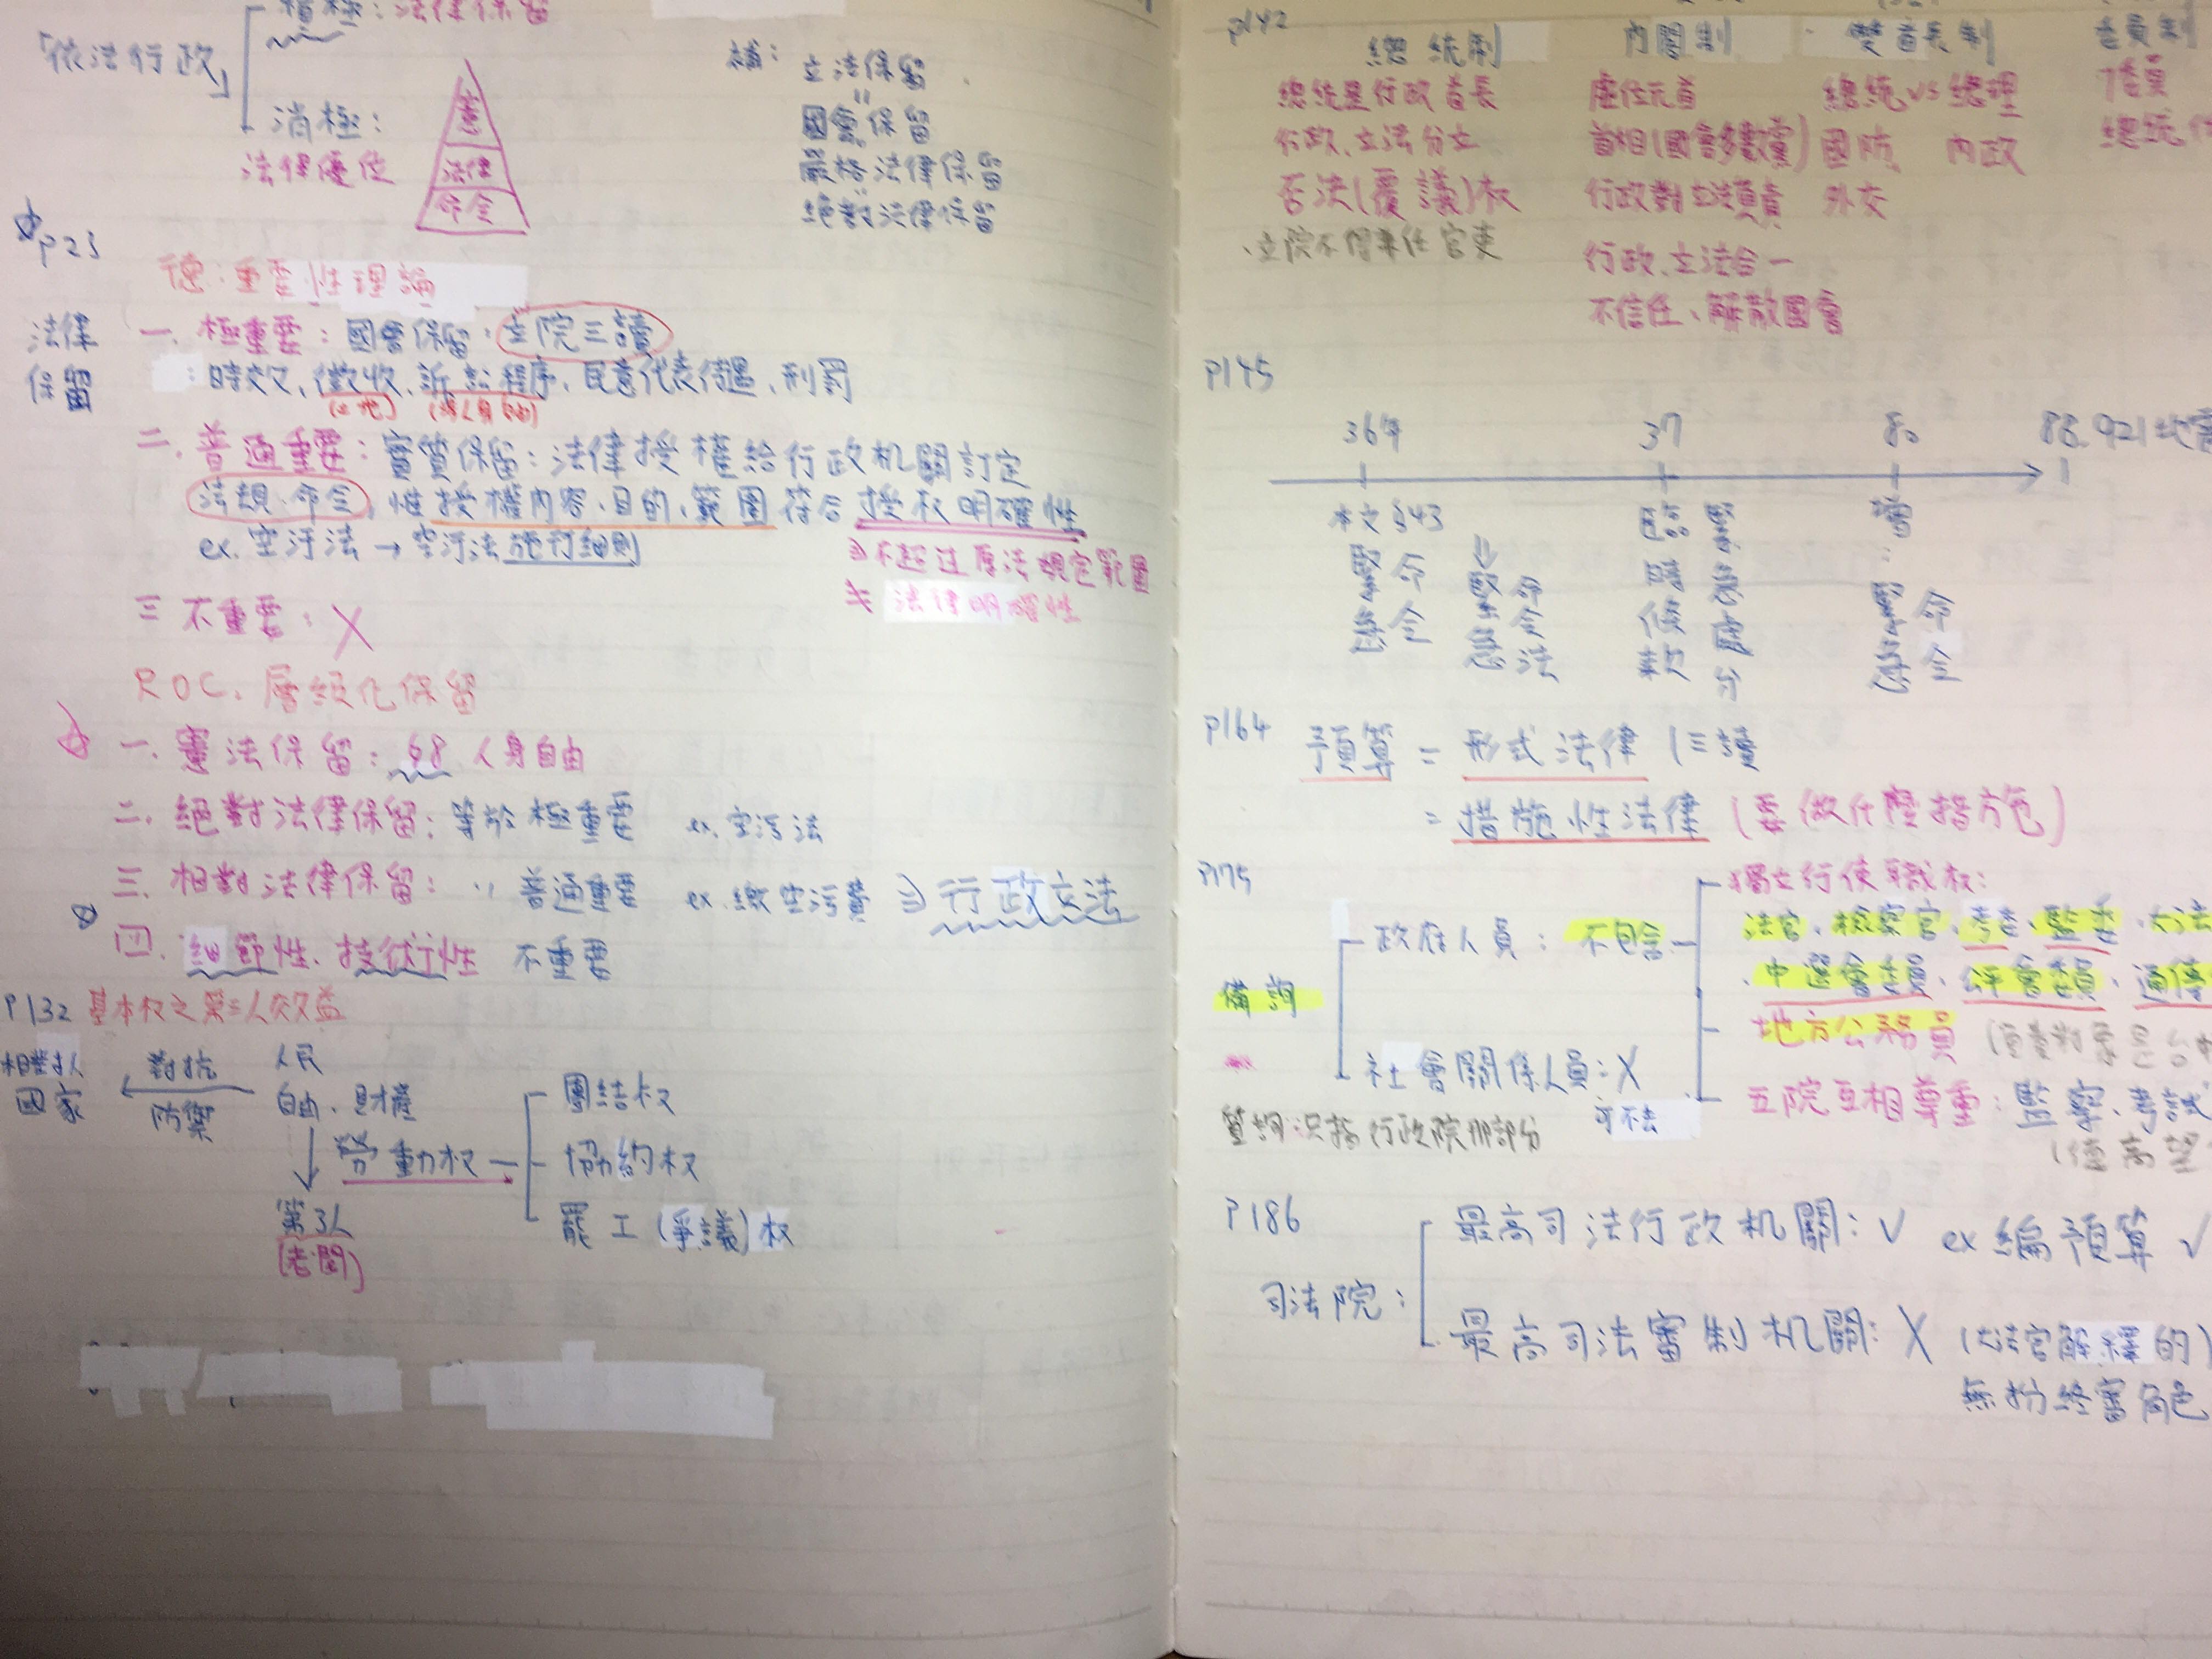 積極：法律保留
「依法行政」
消極：
法律優位
憲
法律
命令
補：立法保留
國會保留
嚴格法律保留
絕對法律保留
p23
德：重要性理論
法律
保留
一. 極重要：國會保留：立院三讀
：時效、徵收、訴訟程序、民意代表待遇、刑罰
(土地) (限人身自由)
二. 普通重要：實質保留：法律授權給行政机關訂定
法規命令，惟授權內容、目的、範圍符合授权明確性
ex. 空污法→空污法施行細則
不超过原法規定範圍
≠ 法律明確性
三 不重要：X
ROC. 層級化保留
一. 憲法保留：§8 人身自由
二. 絕對法律保留：等於極重要 ex. 空污法
三. 相對法律保留：〃 普通重要 ex. 繳空污費 行政立法
四. 細節性、技術性 不重要
P132 基本权之第三人效益
相對人
國家
對抗
防禦
人民
自由、財產
勞動权
團結权
協約权
罷工(爭議)权
第3人
(老闆)
p142
總統制 內閣制 雙首長制 委員制
總統是行政首長 虛位元首 總統 vs 總理 7委員
行政、立法分立 首相(國會多數黨) 國防、 內政 總統
否法(覆議)权 行政對立法負責 外交
、立院不得兼任官吏
行政、立法合一
不信任、解散國會
P145
36年 37 80 88.921地震
本文§43 緊急命令
⇓ 緊急命令法
臨時條款 緊急處分
增：緊急命令
P164 預算 = 形式法律 (三讀
= 措施性法律 (要做什麼措方色)
P175
備詢
政府人員：不包含
獨立行使職权：
法官、檢察官、考委、監委、大法
、中選會委員、公平會委員、通傳
地方公務員
社會關係人員：X
可不去
五院互相尊重：監察、考試
(德高望
質詢：只指行政院那部分
P186
司法院：
最高司法行政机關：V ex 編預算 √
最高司法審制机關：X (大法官解釋的)
無扮終審角色